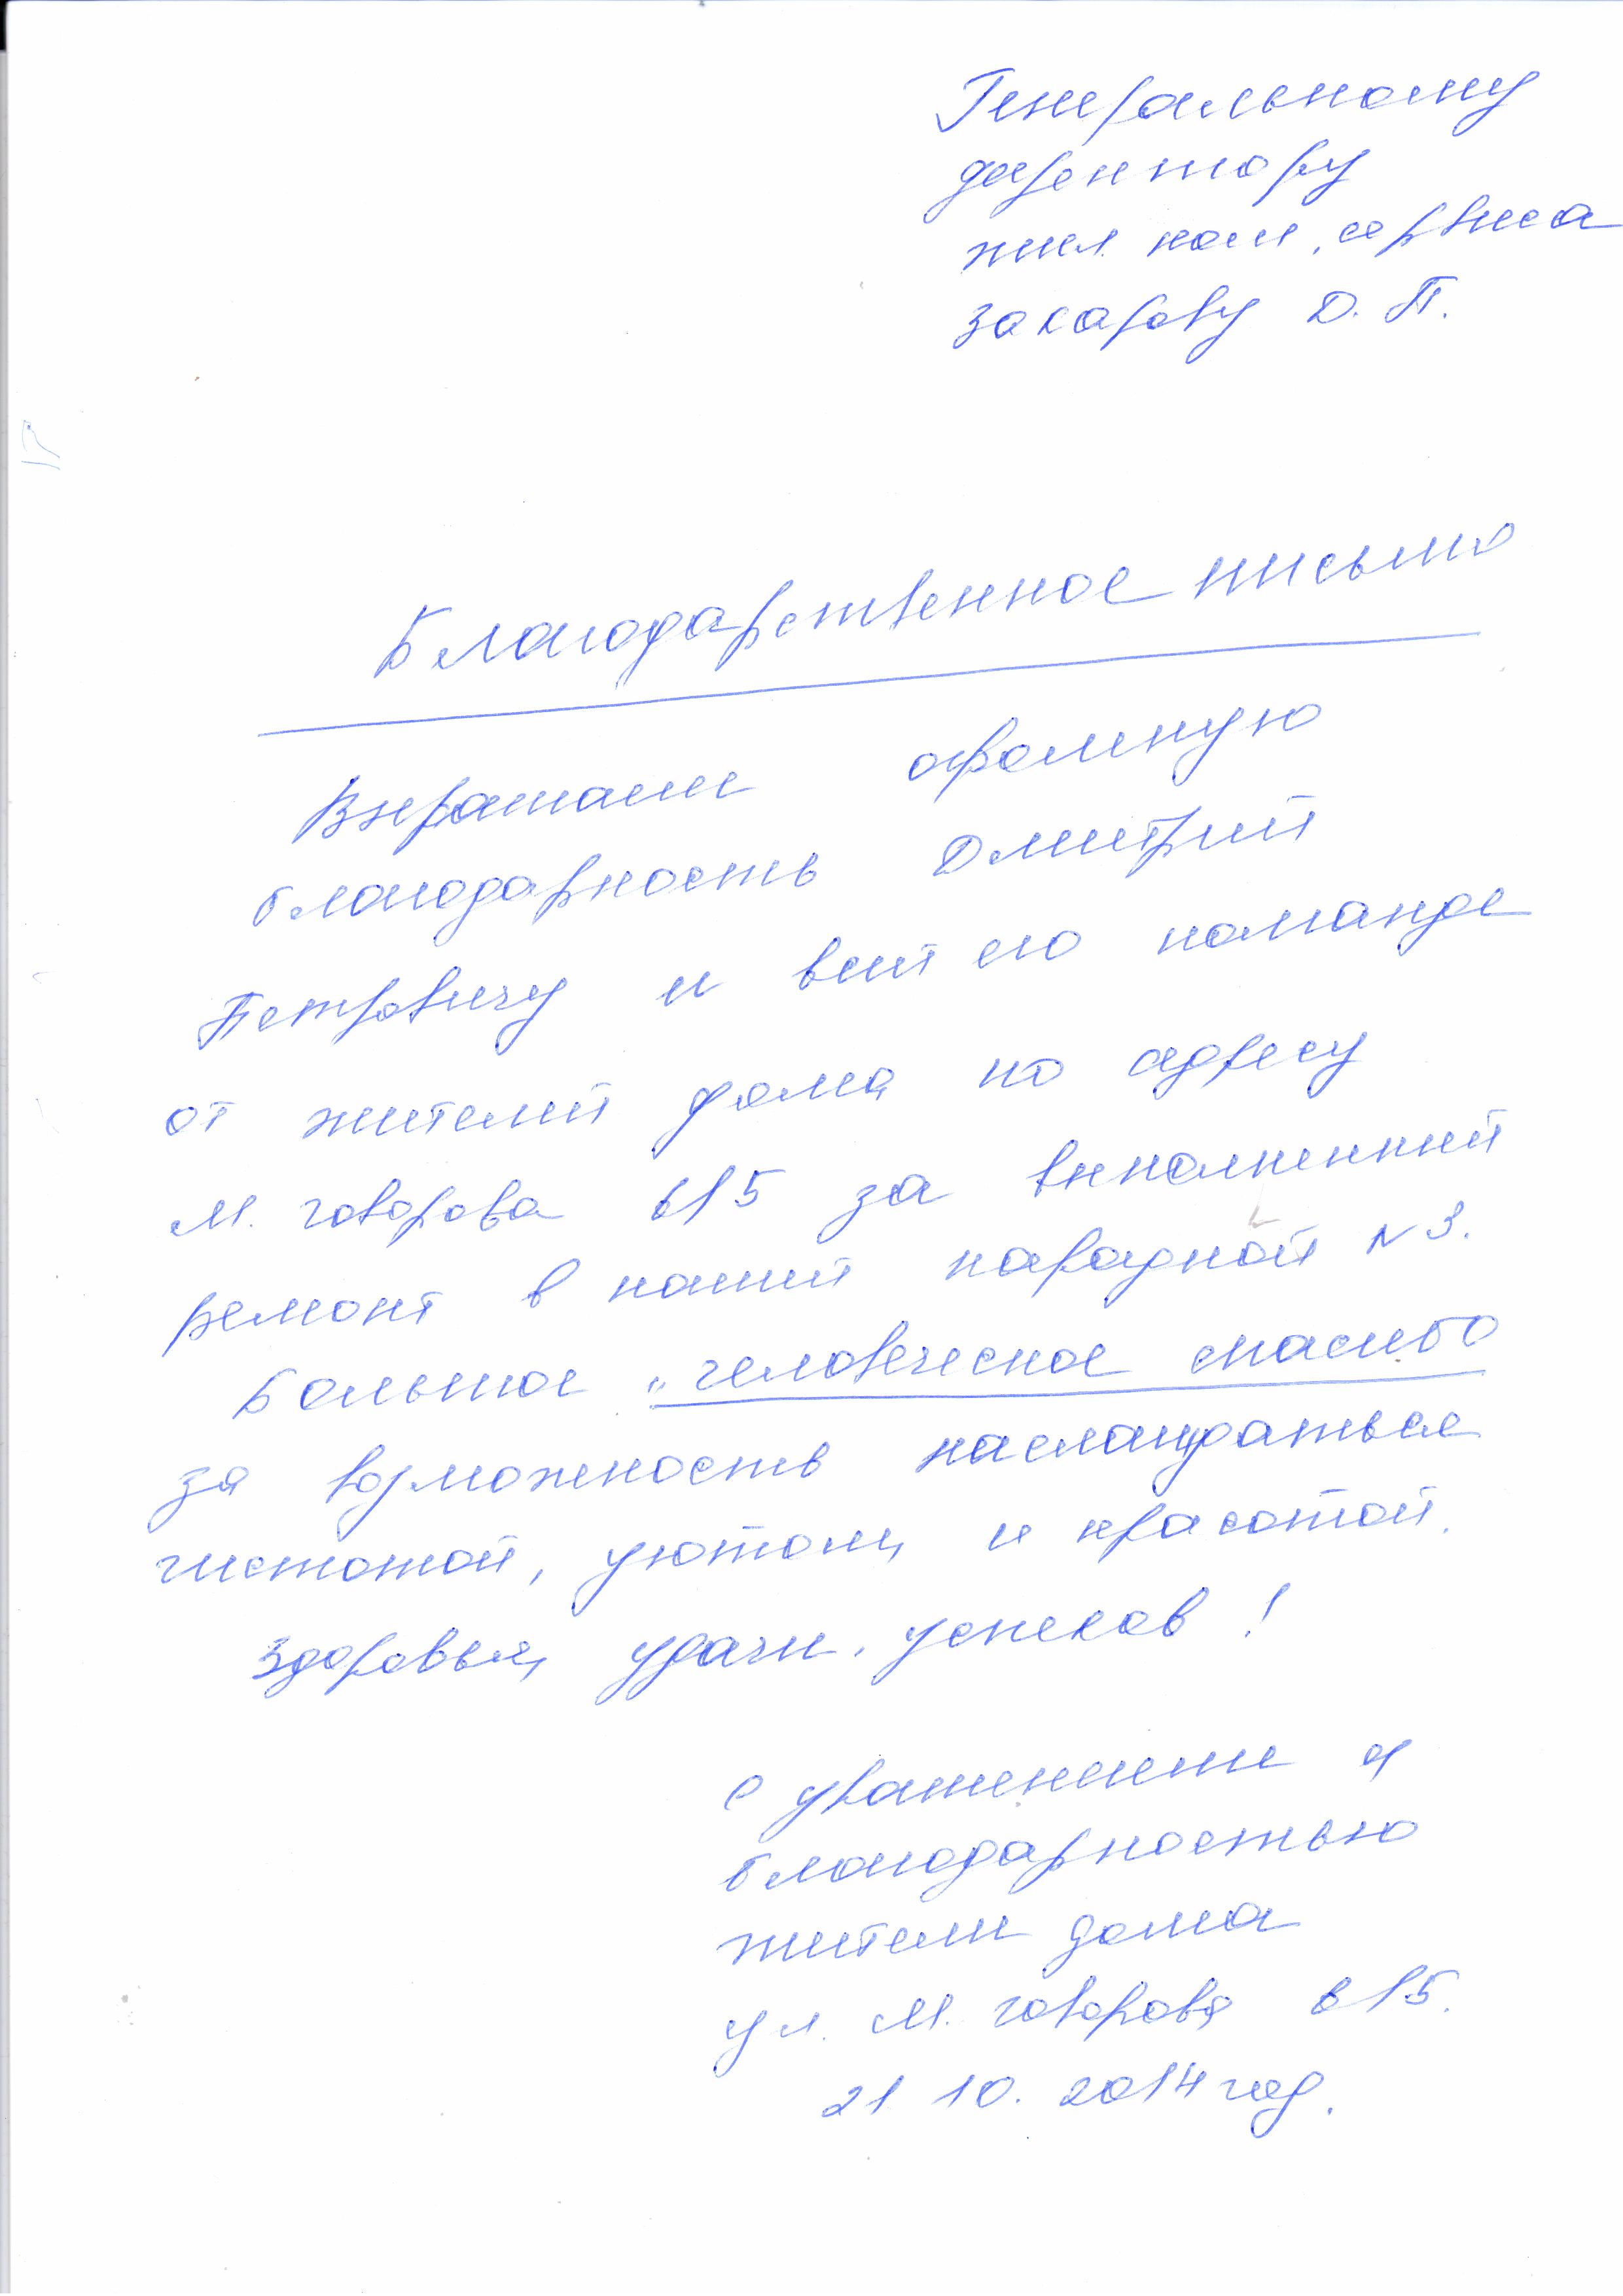 Генеральному
директору
жил ком. сервиса
Захарову Д. П.
Благодарственное письмо
Выражаем огромную
благодарность Дмитрий
Петровичу и всей его команде
от жителей дома, по адресу
М. Говорова 6/5 за выполненный
ремонт в нашей парадной N 3.
Большое „человеческое спасибо
за возможность наслаждаться
чистотой, уютом, и красотой.
Здоровья, удачи, успехов!
С уважением и
благодарностью
жители дома
ул. М. Говорова 6/5.
21 10. 2014 год.